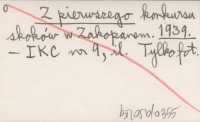 Z pierwszego konkursu
skoków w Zakopanem. 1939.
– IKC nr 9, il. Tylko fot.